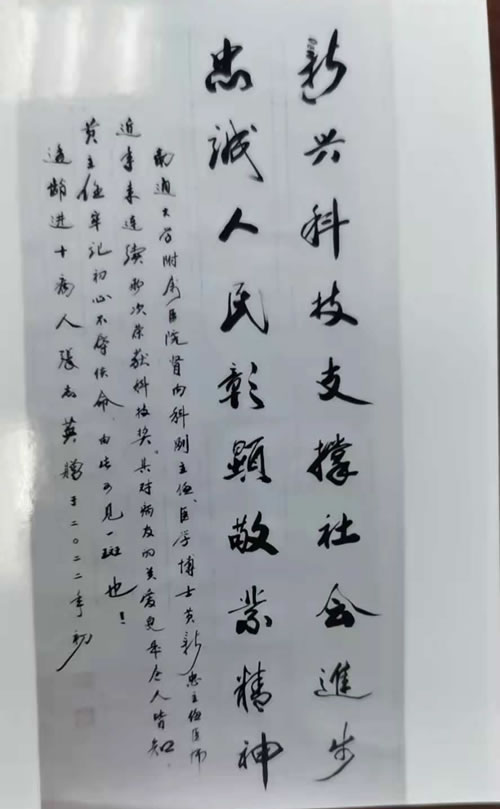 新兴科技支撑社会進步
忠诚人民彰顯敬業精神
南通大学附属医院肾内科副主任、医学博士黄新忠主任医师
近年来连续多次荣获科技奖。其对病友的关爱更是尽人皆知
黄主任牢记初心不辱使命,由此可见一斑也!
透龄进十病人張志英贈于二〇二二年初